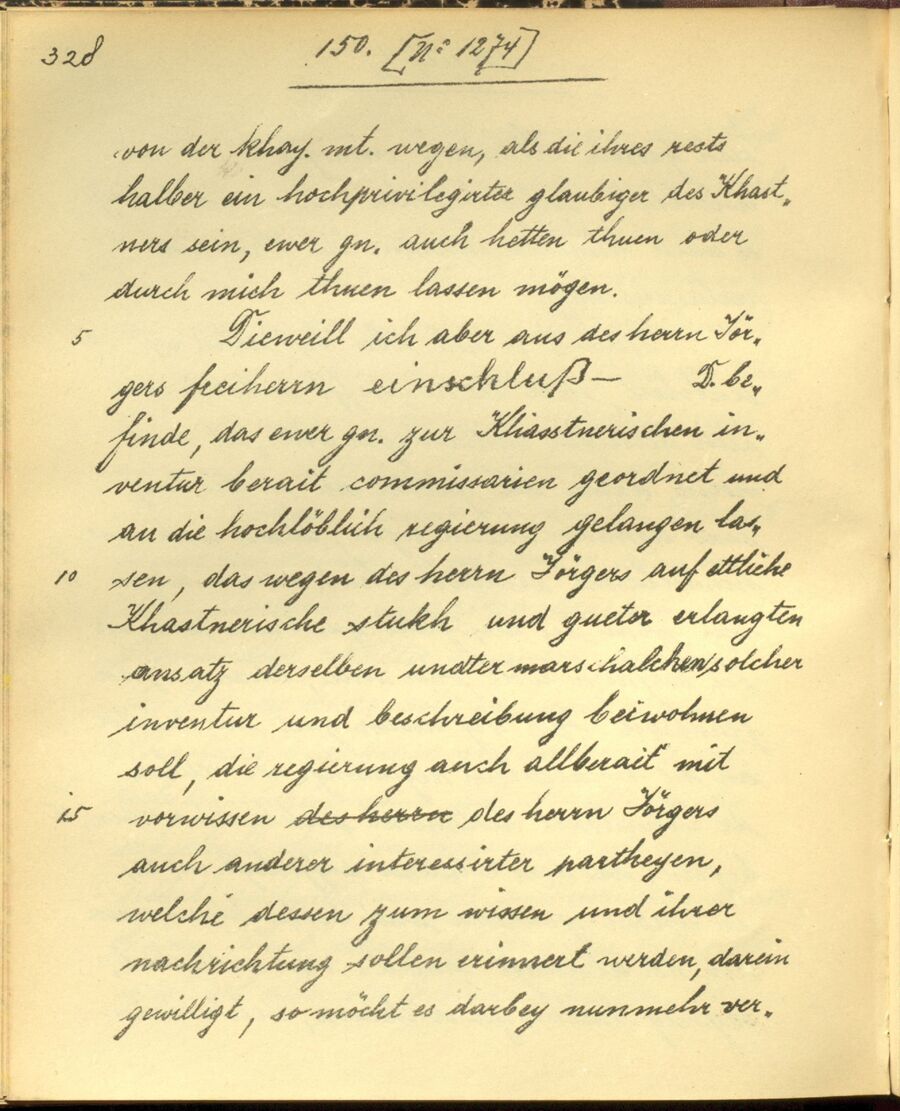 328
150. [Nº 1274]
von der khay. mt. wegen, als die ihres rests
halber ein hochprivilegirter glaubiger des Khast„
ners sein, ewer gn. auch hetten thuen oder
durch mich thuen lassen mögen.
5 Dieweill ich aber aus des herrn Jör„
gers freiherrn einschluß — D. be„
finde, das ewer gn. zur Khasstnerischen in„
ventur berait commissarien geordnet und
an die hochlöblich regierung gelangen las„
10 sen, das wegen des herrn Jörgers auf ettliche
Khastnerische stukh und gueter erlangten
ansatz derselben undtermarschalchen solcher
inventur und beschreibung beiwohnen
soll, die regierung auch allberait mit
15 vorwissen des herrn des herrn Jörgers
auch anderer interessirter partheyen,
welche dessen zum wissen und ihrer
nachrichtung sollen erinnert werden, darein
gewilligt, so möcht es darbey nunmehr ver„